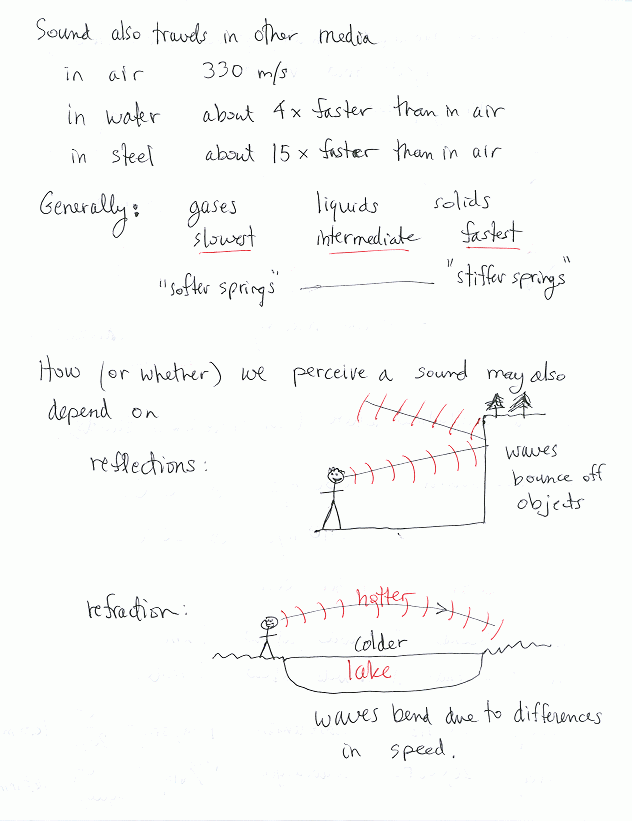 Sound also travels in other media
in air 330 m/s
in water about 4x faster than in air
in steel about 15x faster than in air
Generally: gases liquids solids
slowest intermediate fastest
"softer springs" "stiffer springs"
How (or whether) we perceive a sound may also
depend on
reflections:
waves
bounce off
objects
refraction:
hotter
colder
lake
waves bend due to differences
in speed.